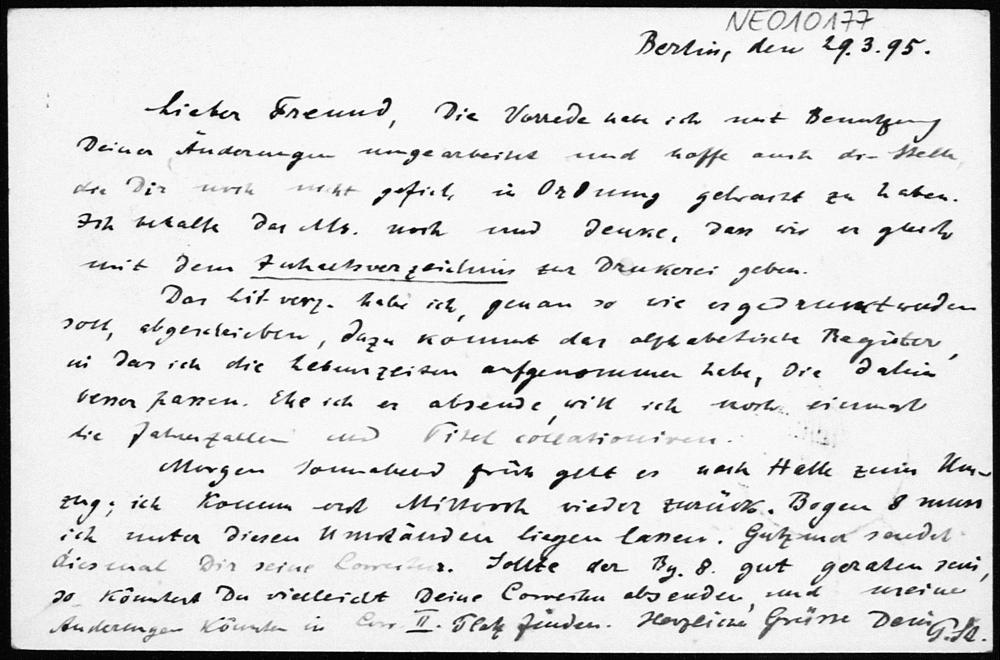 NEO10177
Berlin, den 29.3.95.
Lieber Freund, Die Vorrede habe ich mit Benutzung
Deiner Änderungen umgearbeitet und hoffe auch die Stelle,
die Dir noch nicht gefiel, in Ordnung gebracht zu haben.
Ich behalte das Ms. noch und denke, dass wir es gleich
mit dem Inhaltsverzeichnis zur Druckerei geben.
Das Litverz. habe ich, genau so wie es gedruckt werden
soll, abgeschrieben, dazu kommt das alphabetische Register,
in das ich die Lebenszeiten aufgenommen habe, die dahin
besser passen. Ehe ich es absende, will ich noch einmal
die Jahreszahlen und Titel collationiren.
Morgen Sonnabend früh geht es nach Halle zum Um-
zug; ich komme erst Mittwoch wieder zurück. Bogen 8 muss
ich unter diesen Umständen liegen lassen. Gutzmer sendet
diesmal Dir seine Correctur. Sollte der Bg. 8. gut geraten sein,
so könntest Du vielleicht Deine Correctur absenden, und meine
Änderungen könnten in Corr. II. Platz finden. Herzliche Grüsse Dein P. St.